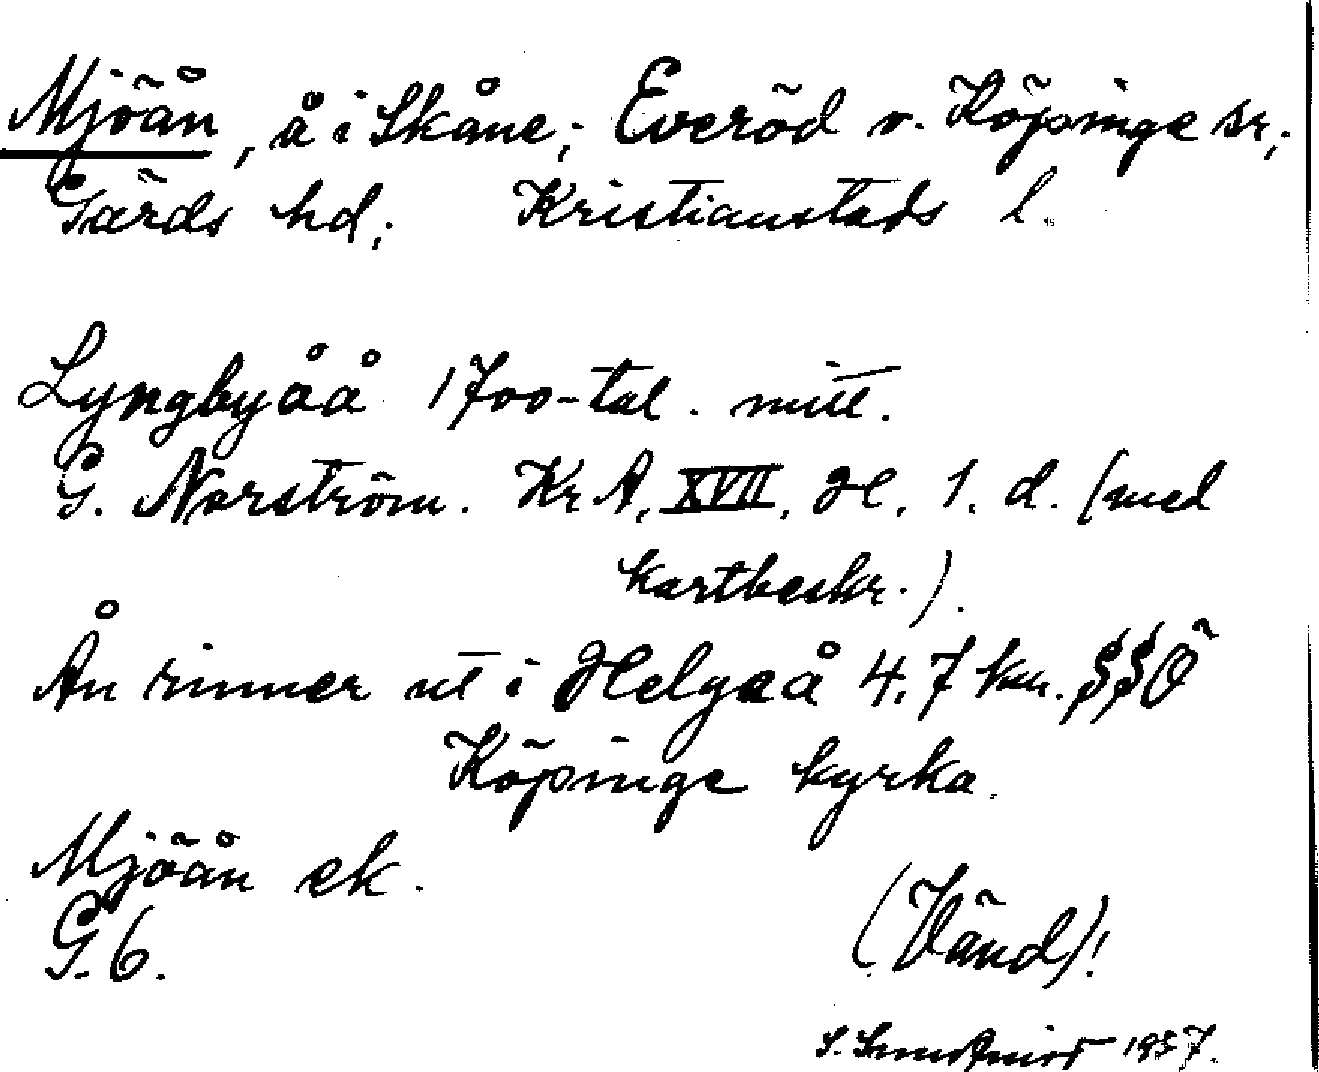 Mjöån, å i Skåne; Everöd o. Köpinge sr;
Gärds hd; Kristianstads l.
Lyngbyåå 1700-tal. mitt.
G. Norström. Kr A, XVII, Hl. 1. d. (med
kartbeskr.).
Ån rinner ut i Helgeå 4,7 km. SSÖ
Köpinge kyrka.
Mjöån ek.
G. 6.
(Vänd)!
S. 1957.